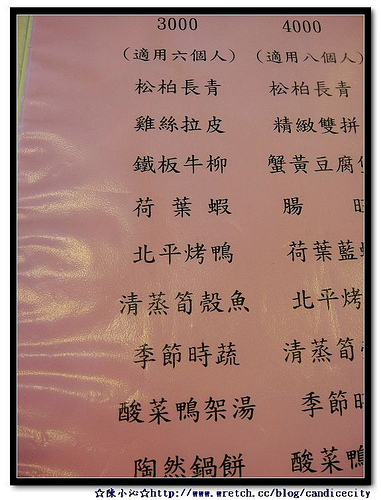 3000 4000
(適用六個人) (適用八個人)
松柏長青 松柏長青
雞絲拉皮 精緻雙拼
鐵板牛柳 蟹黃豆腐
荷葉蝦 腸
北平烤鴨 荷葉藍
清蒸筍殼魚 北平烤
季節時蔬 清蒸筍
酸菜鴨架湯 季節
陶然鍋餅 酸菜鴨
☆陳小沁☆http://www.wretch.cc/blog/candicecity